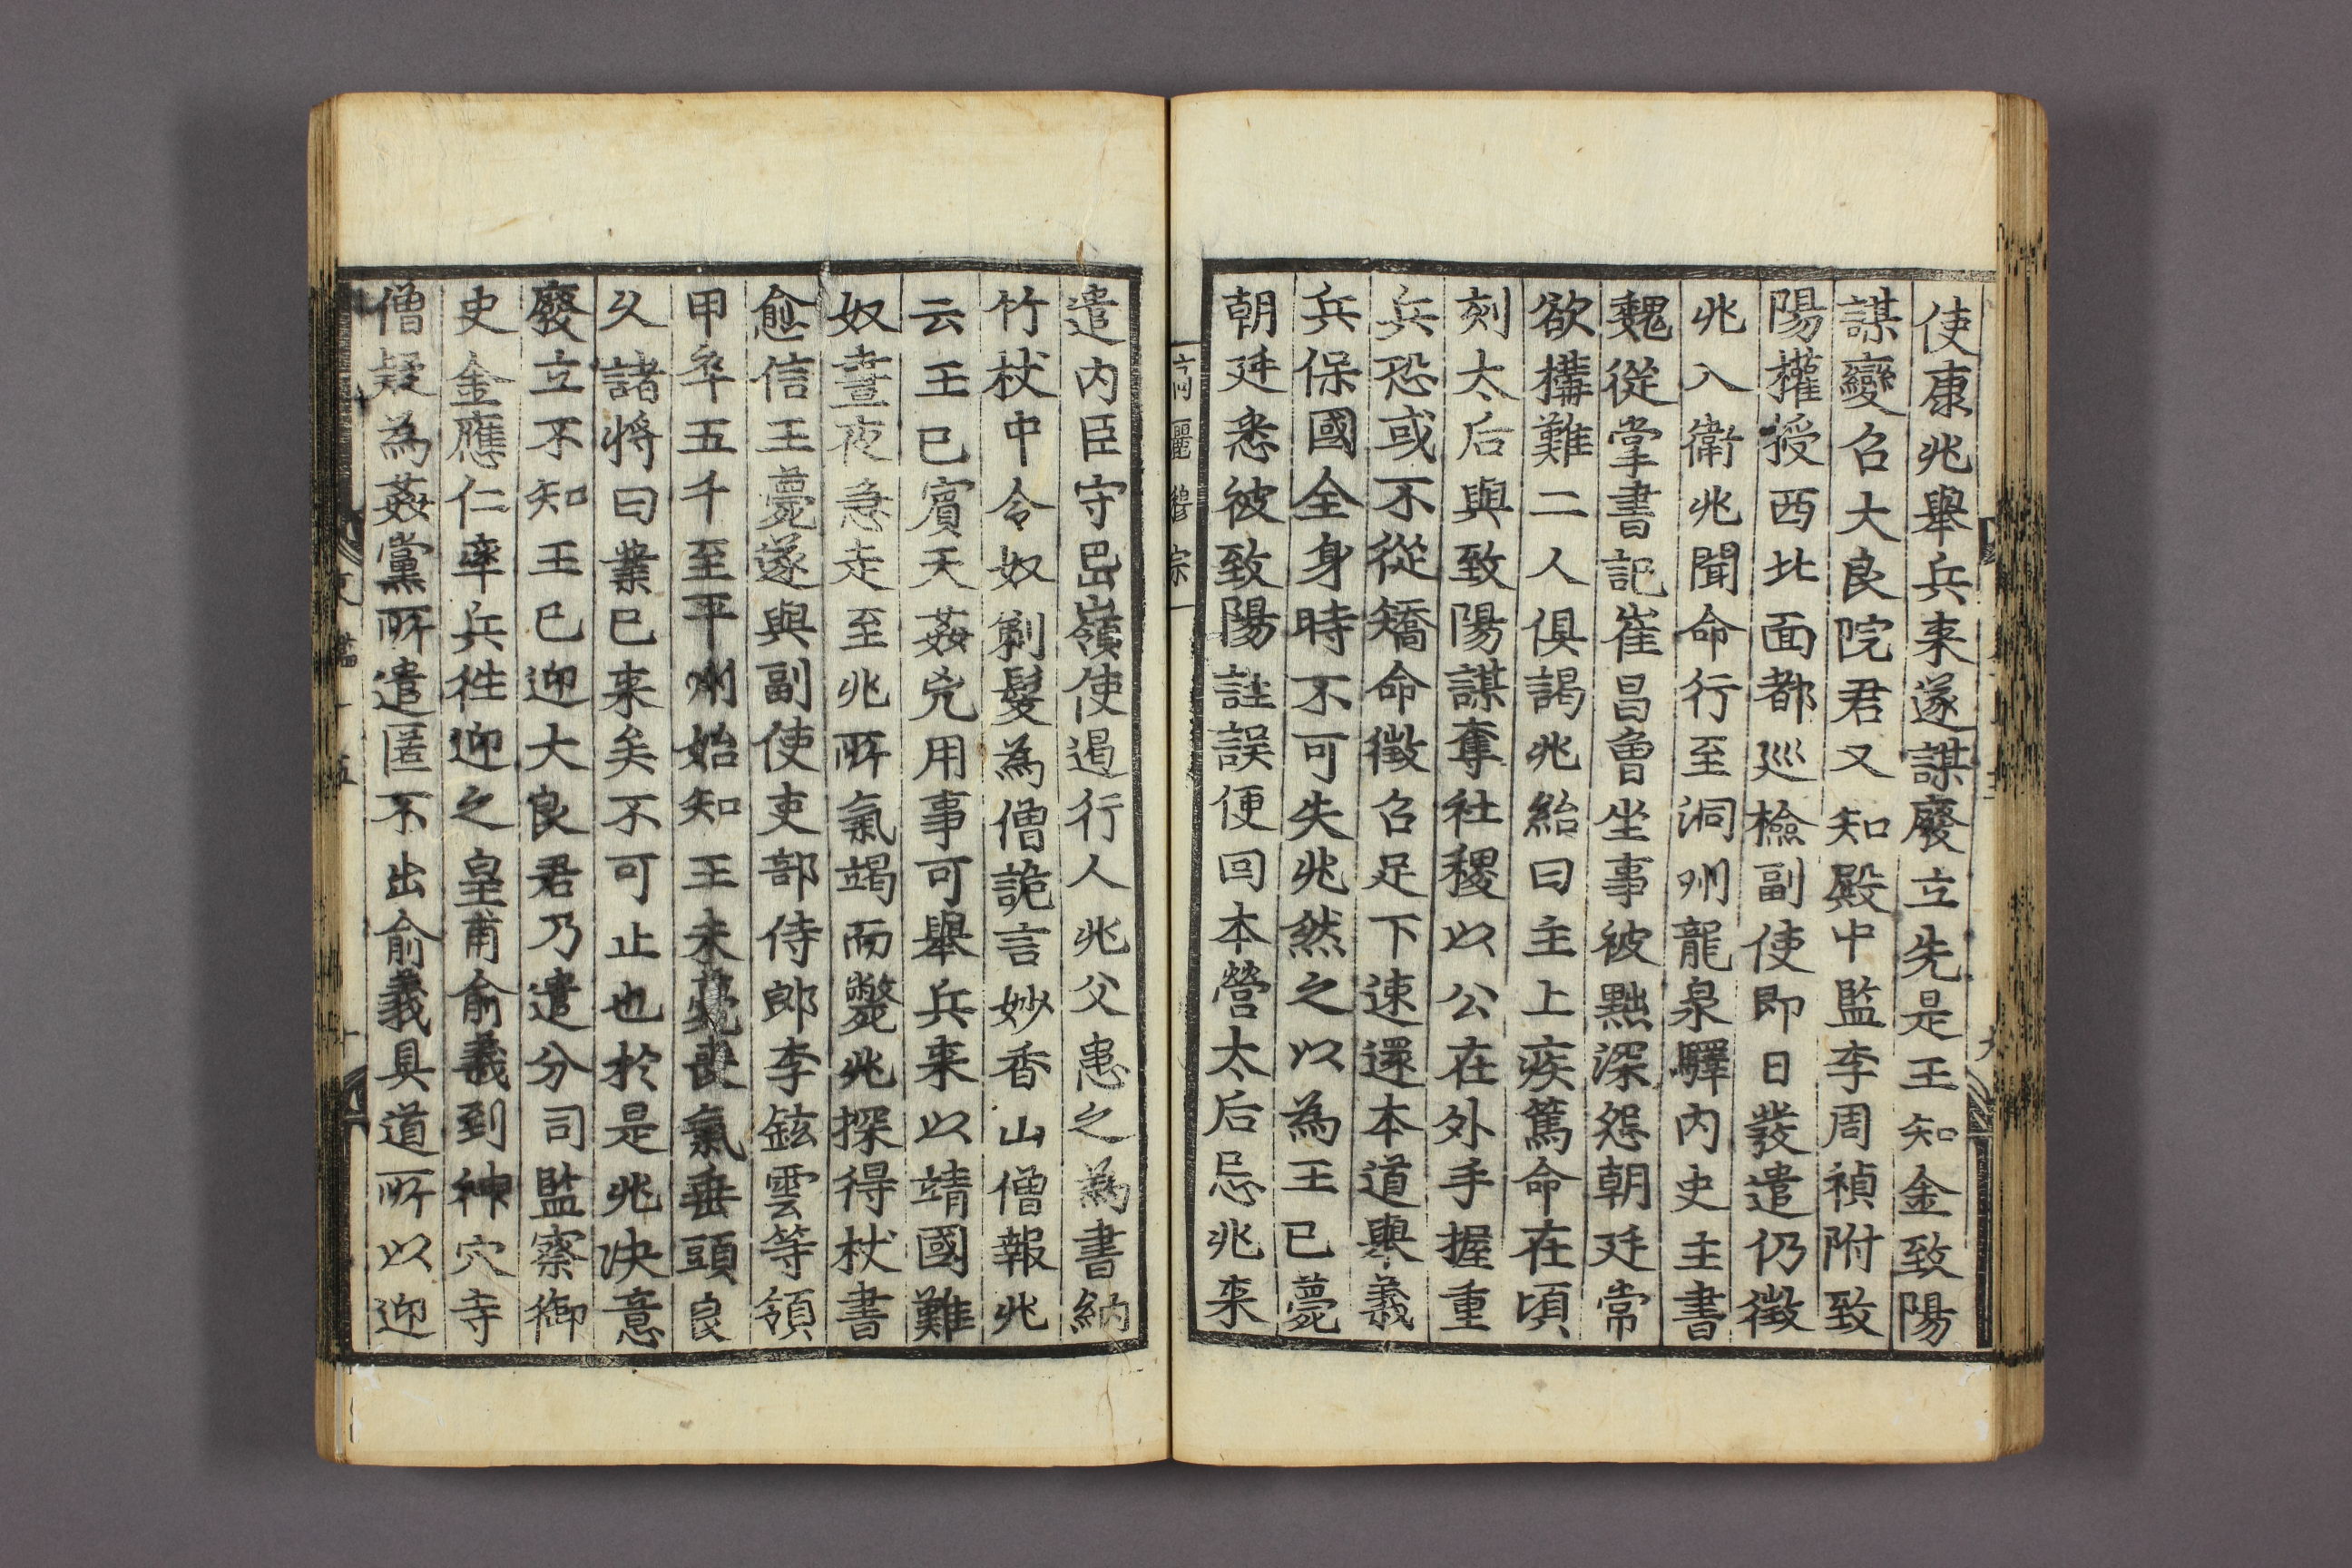 使康兆舉兵来遂謀廢立先是王知金致陽
謀變召大良院君又知殿中監李周禎附致
陽權授西北面都巡檢副使即日發遣仍徵
兆入衛兆聞命行至洞州龍泉驛內史主書
魏從掌書記崔昌曾坐事被黜深怨朝廷常
欲構難二人俱謁兆紿曰主上疾篤命在頃
刻太后與致陽謀奪社稷以公在外手握重
兵恐或不從矯命徵召足下速還本道興義
兵保國全身時不可失兆然之以為王已薨
朝廷悉被致陽詿誤便回本營太后忌兆来
高麗 穆宗
遣內臣守岊嶺使遏行人兆父患之為書納
竹杖中令奴剃髮為僧詭言妙香山僧報兆
云王已賓天姦兇用事可舉兵来以靖國難
奴晝夜急走至兆所氣竭而斃兆探得杖書
愈信王薨遂與副使吏部侍郎李鉉雲等領
甲卒五千至平州始知王未薨喪氣垂頭良
久諸將曰業已来矣不可止也於是兆决意
廢立不知王已迎大良君乃遣分司監察御
史金應仁率兵徃迎之皇甫俞義到神穴寺
僧疑為姦黨所遣匿不出俞義具道所以迎